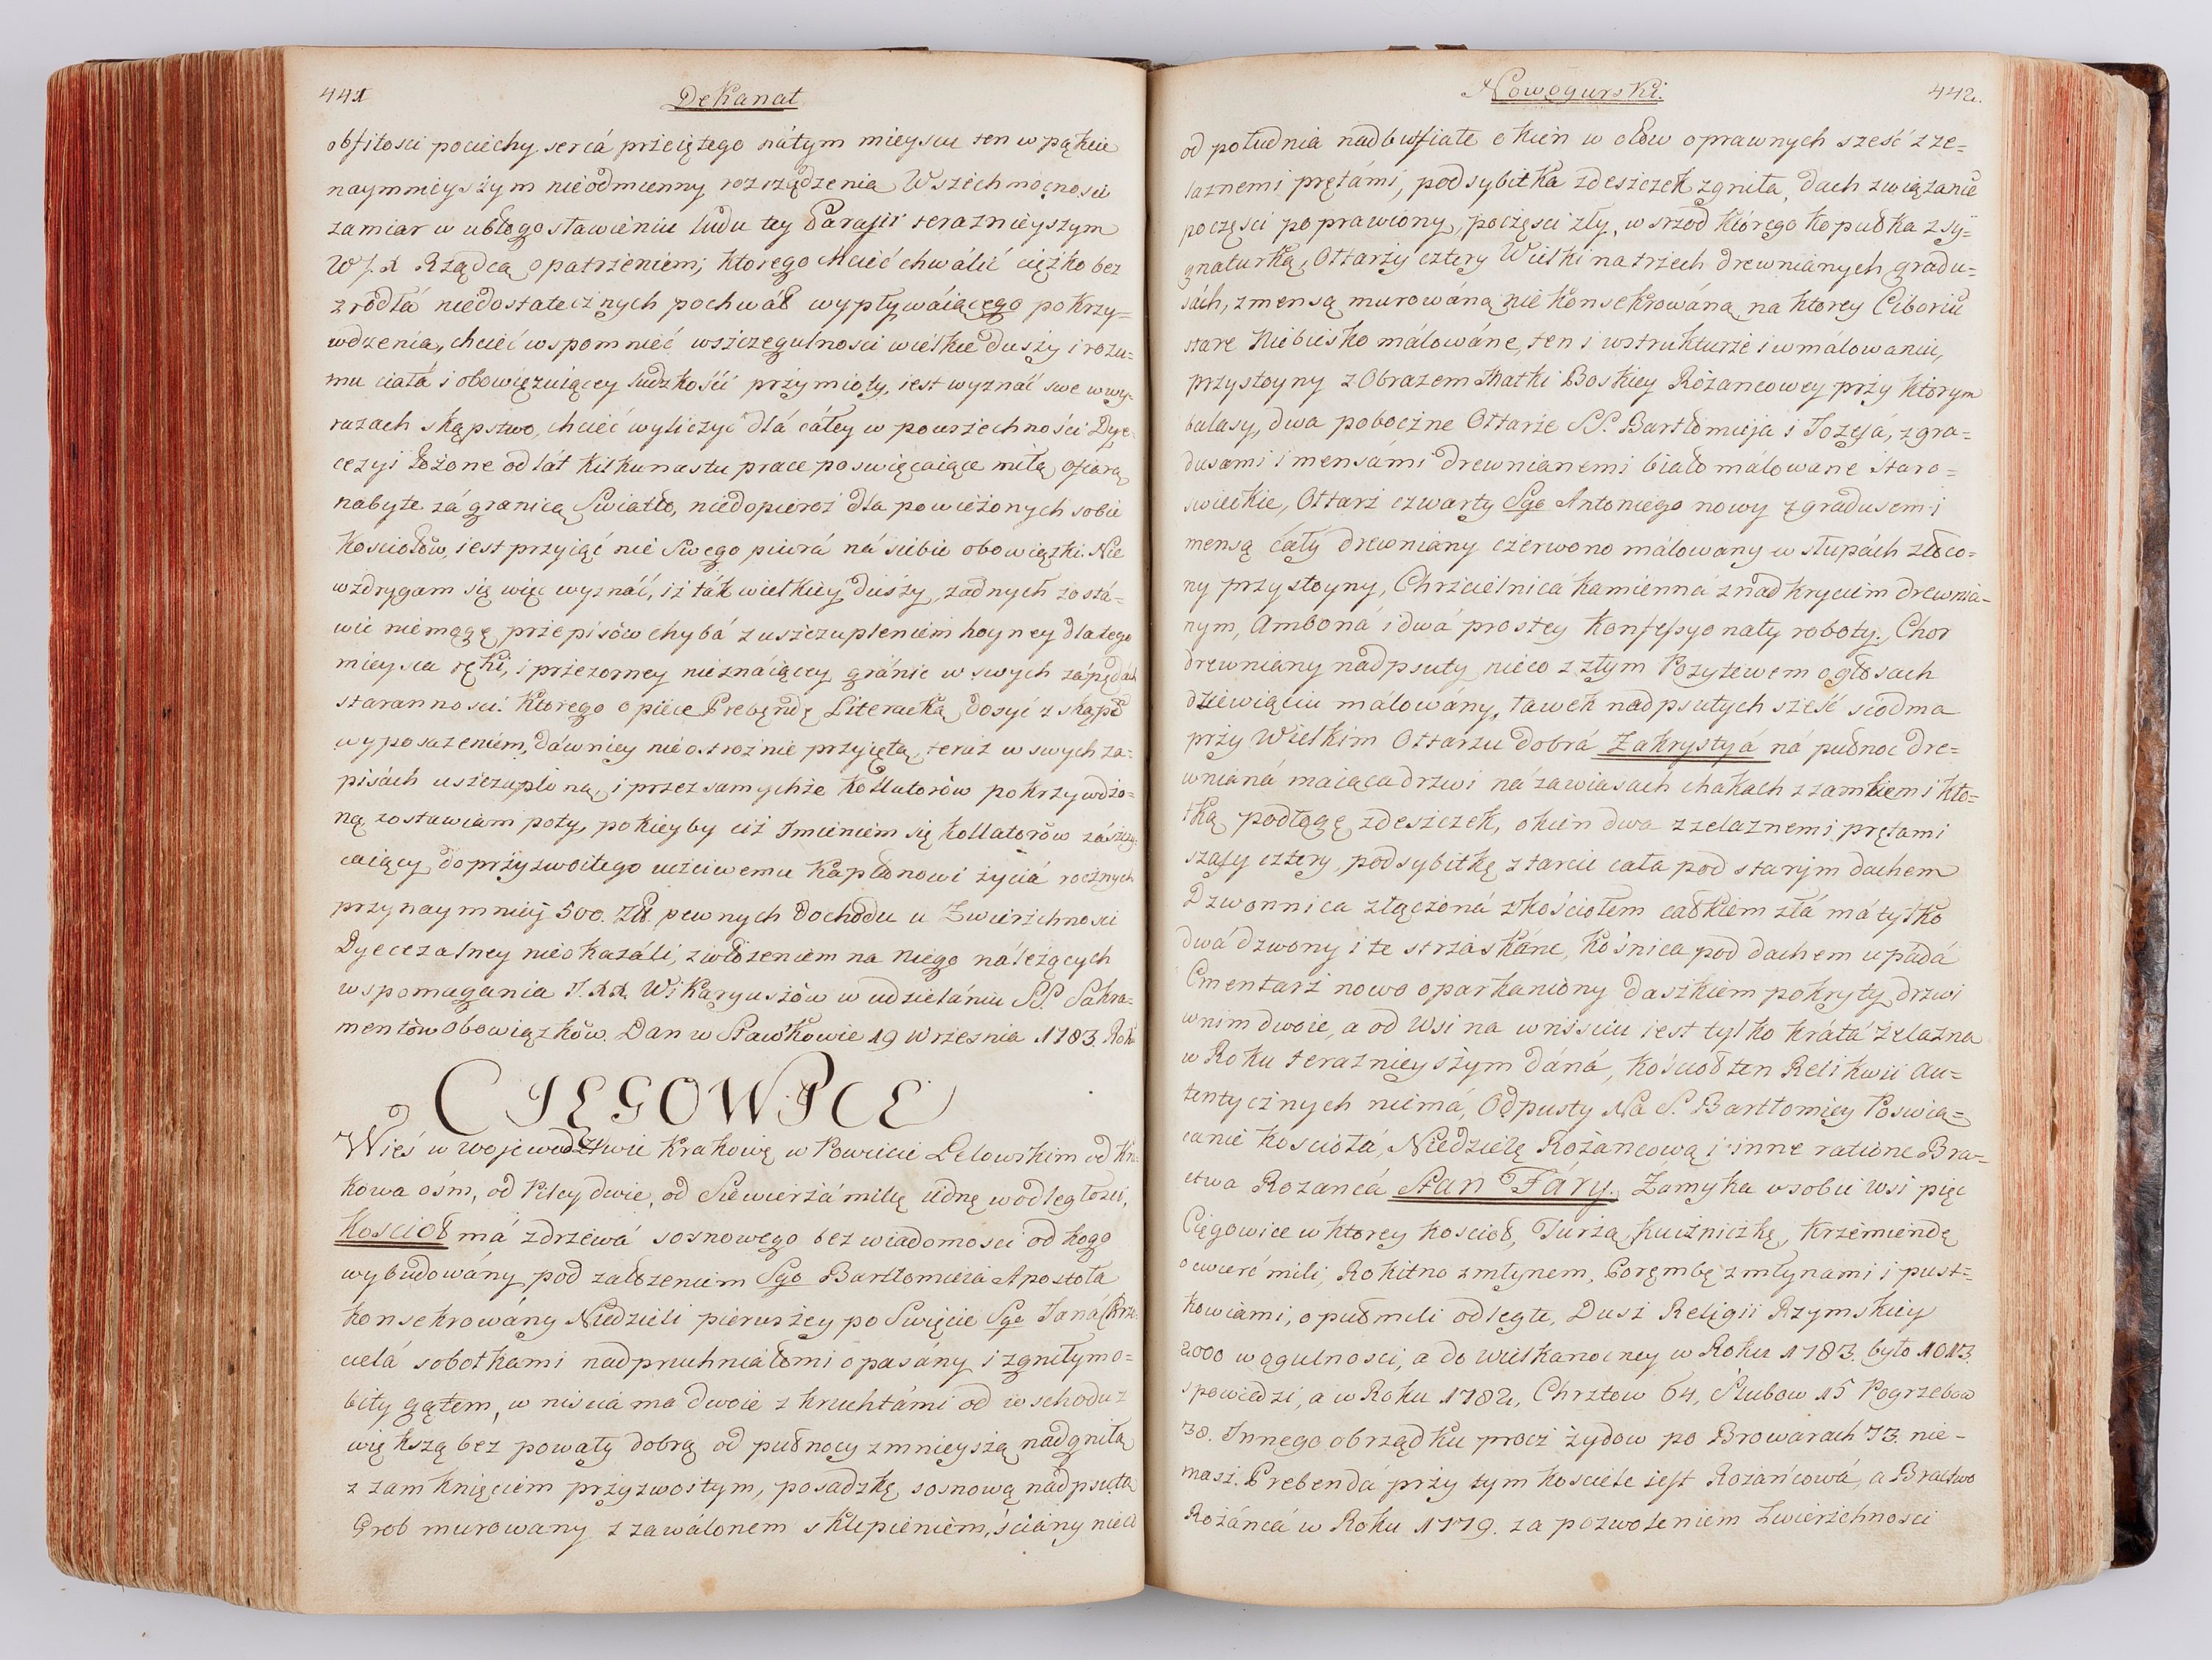 441
Dekanat
obfitosci pociechy serca przeiętego nátym mieyscu ten w pąkcie
naymnieyszym nieodmienny rozrządzenia Wszechmocnosci
zamiar w ubłogosławieniu ludu tey Parafii teraznieyszym
WJ.X Rządcą opatrzeniem; ktorego chcieć chwálić ciężko bez
zrodłá niedostatecznych pochwáł wypływáiącego pokrzy=
wdzenia, chcieć wspomnieć wszczegulnosci wielkie duszy i rozu=
mu ciałá i obowięzuiącey ludzkości przymioty, iest wyznać swe w wy=
razach skąpstwo, chcieć wyliczyć dlá cáłey w powszechności Dye=
cezyi łożone od lát kilkunastu prace poswięcaiące miłą ofiarą
nabyte zá granicą Swiatło, niedopieroż dla powieżonych sobie
Kosciołow, iest przyiąć nie Swego piurá ná siebie obowiązki. Nie
wzdrygam się więc wyznáć, iż ták wielkiey duszy, zadnych zostá=
wic niemogę przepisów chybá z uszczupleniem hoyney dla tego
mieysca ręki, i przezorney nieznáiącey gránic w swych zápędách
starannosci. Ktorego opiece Prebendę Literacką dosyć z skąpo
wyposazeniem, dáwniey nieostroznie przyiętą, teraz w swych za=
pisách uszczuploną, i przez samychże Kollatorów pokrzywdzo=
ną zostawiam poty, pokieyby ciż Imieniem się Kollatorów zászczy
caiący do przyzwoitego uczciwemu Kapłonowi życiá rocznych
przynaymniey 500. Zł. pewnych dochodu u Zwierzchnosci
Dyecezalney nieokazáli, z włożeniem na niego náleżących
wspomagania J.XX. Wikaryuszów w udzielániu SS. Sakra=
mentów obowiązków. Dan w Sławkowie 19 Wrzesnia 1783. Roku
CIĘGOWICE
Wieś w Wojewodztwie Krakowę w Powiecie Lelowskim od Kra=
kowa ośm, od Pilcy dwie, od Siewierzá milę iednę w odległosci,
Kościoł má zdrzewá sosnowego bez wiadomosci od kogo
wybudowány pod załozeniem Sgo Bartłomieia Apostoła
konsekrowány Niedzieli pierwszey po Swięcie Sgo Janá Chrz
cielá sobotkami nadpruhniałomi opasány i zgniłym o=
bity gątem, w niscia ma dwoie z kruchtámi od wschodu z
większą bez powały dobrą od pułnocy z mnieyszą nadgniłą
z zamknięciem przyzwoitym, posadzkę sosnową nadpsutą
Grob murowany z zawálonem sklepieniem, ściány nieco
Nowogurski.
442.
od południa nadbutfiałe okien w ołow oprawnych sześć z że=
laznemi prętámi, podsybitka zdeszczek zgniła, dach związanie
poczęsci poprawiony, poczęsci zły, w srzod którego kopułka z sy=
gnaturką, Ołtarzy cztery Wielki na trzech drewnianych gradu=
sách, z mensą murowáną nie konsekrowáną, na ktorey Ciboriu
stare Niebiesko málowáne, ten i wstrukturze i w málowaniu,
przystoyny z Obrazem Matki Boskiey Różancowey przy ktorym
balasy, dwa poboczne Ołtarze SS. Bartłomieja i Jozefá, z gra=
dusami i mensámi drewnianemi biało málowane staro=
swieckie, Ołtarz czwarty Sgo Antoniego nowy z gradusem i
mensą cáły drewniany czerwono málowany w słupách złoco=
ny przystoyny, Chrzcielnicá kamienná z nad kryciem drewnia=
nym, Amboná i dwá prostey konfessyonały roboty. Chor
drewniany nádpsuty nieco z złym Pozytewem o głosach
dziewiąciu málowány, ławek nadpsutych sześć siodma
przy Wielkim Ołtarzu dobrá Zakrystyá ná pułnoc dre=
wnianá maiąca drzwi ná zawiasách i hakach z zamkiem i kło=
tką podłogę zdeszczek, okien dwa z zelaznemi prętami
szafy cztery, podsybitkę z tarcic cała pod starym dachem
Dzwonnica złączoná z kościołem całkiem złá má tylko
dwá dzwony i te strzáskáne, kośnica pod dachem upádá
Cmentarz nowo oparkaniony daszkiem pokryty drzwi
w nim dwoie, a od Wsi na wniściu iest tylko krátá żelazna
w Roku teraznieyszym dáná, kościoł ten Relikwii Au=
tentycznych niemá, Odpusty Na S. Bartłomiey Poswią=
canie Kościołá, Niedzielę Rożancową i inne ratione Bra=
ctwa Rozancá Stan Fáry. Zamyka w sobie Wsi pięc
Cięgowice w ktorey Kościoł, Turzą kuźniczkę, Krzemiendę
o cwierć mili, Rokitno z młynem, Porembę z młynami i pust=
kowiami, o puł mili odległe, Dusz Religii Rzymskiey
2000 w ogulnosci, a do Wielkanocney w Roku 1783. było 1013.
spowiedzi, a w Roku 1782, Chrztow 64, Slubow 15 Pogrzebow
38. Innego obrządku procz żydow po Browarach 73. nie=
masz. Prebendá przy tym kosciele iest Rożańcowá, a Bractwo
Rożáncá w Roku 1779. za pozwoleniem Zwierzchnosci